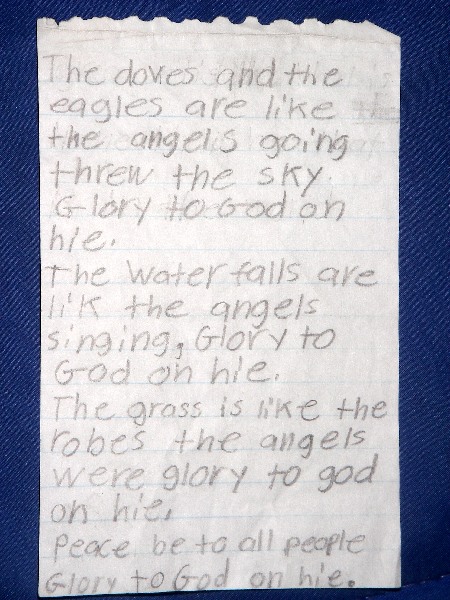 The doves and the
eagles are like
the angels going
threw the sky.
Glory to God on
hie.
The water falls are
lik the angels
singing, Glory to
God on hie.
The grass is like the
robes the angels
were glory to god
on hie.
Peace be to all people
Glory to God on hie.